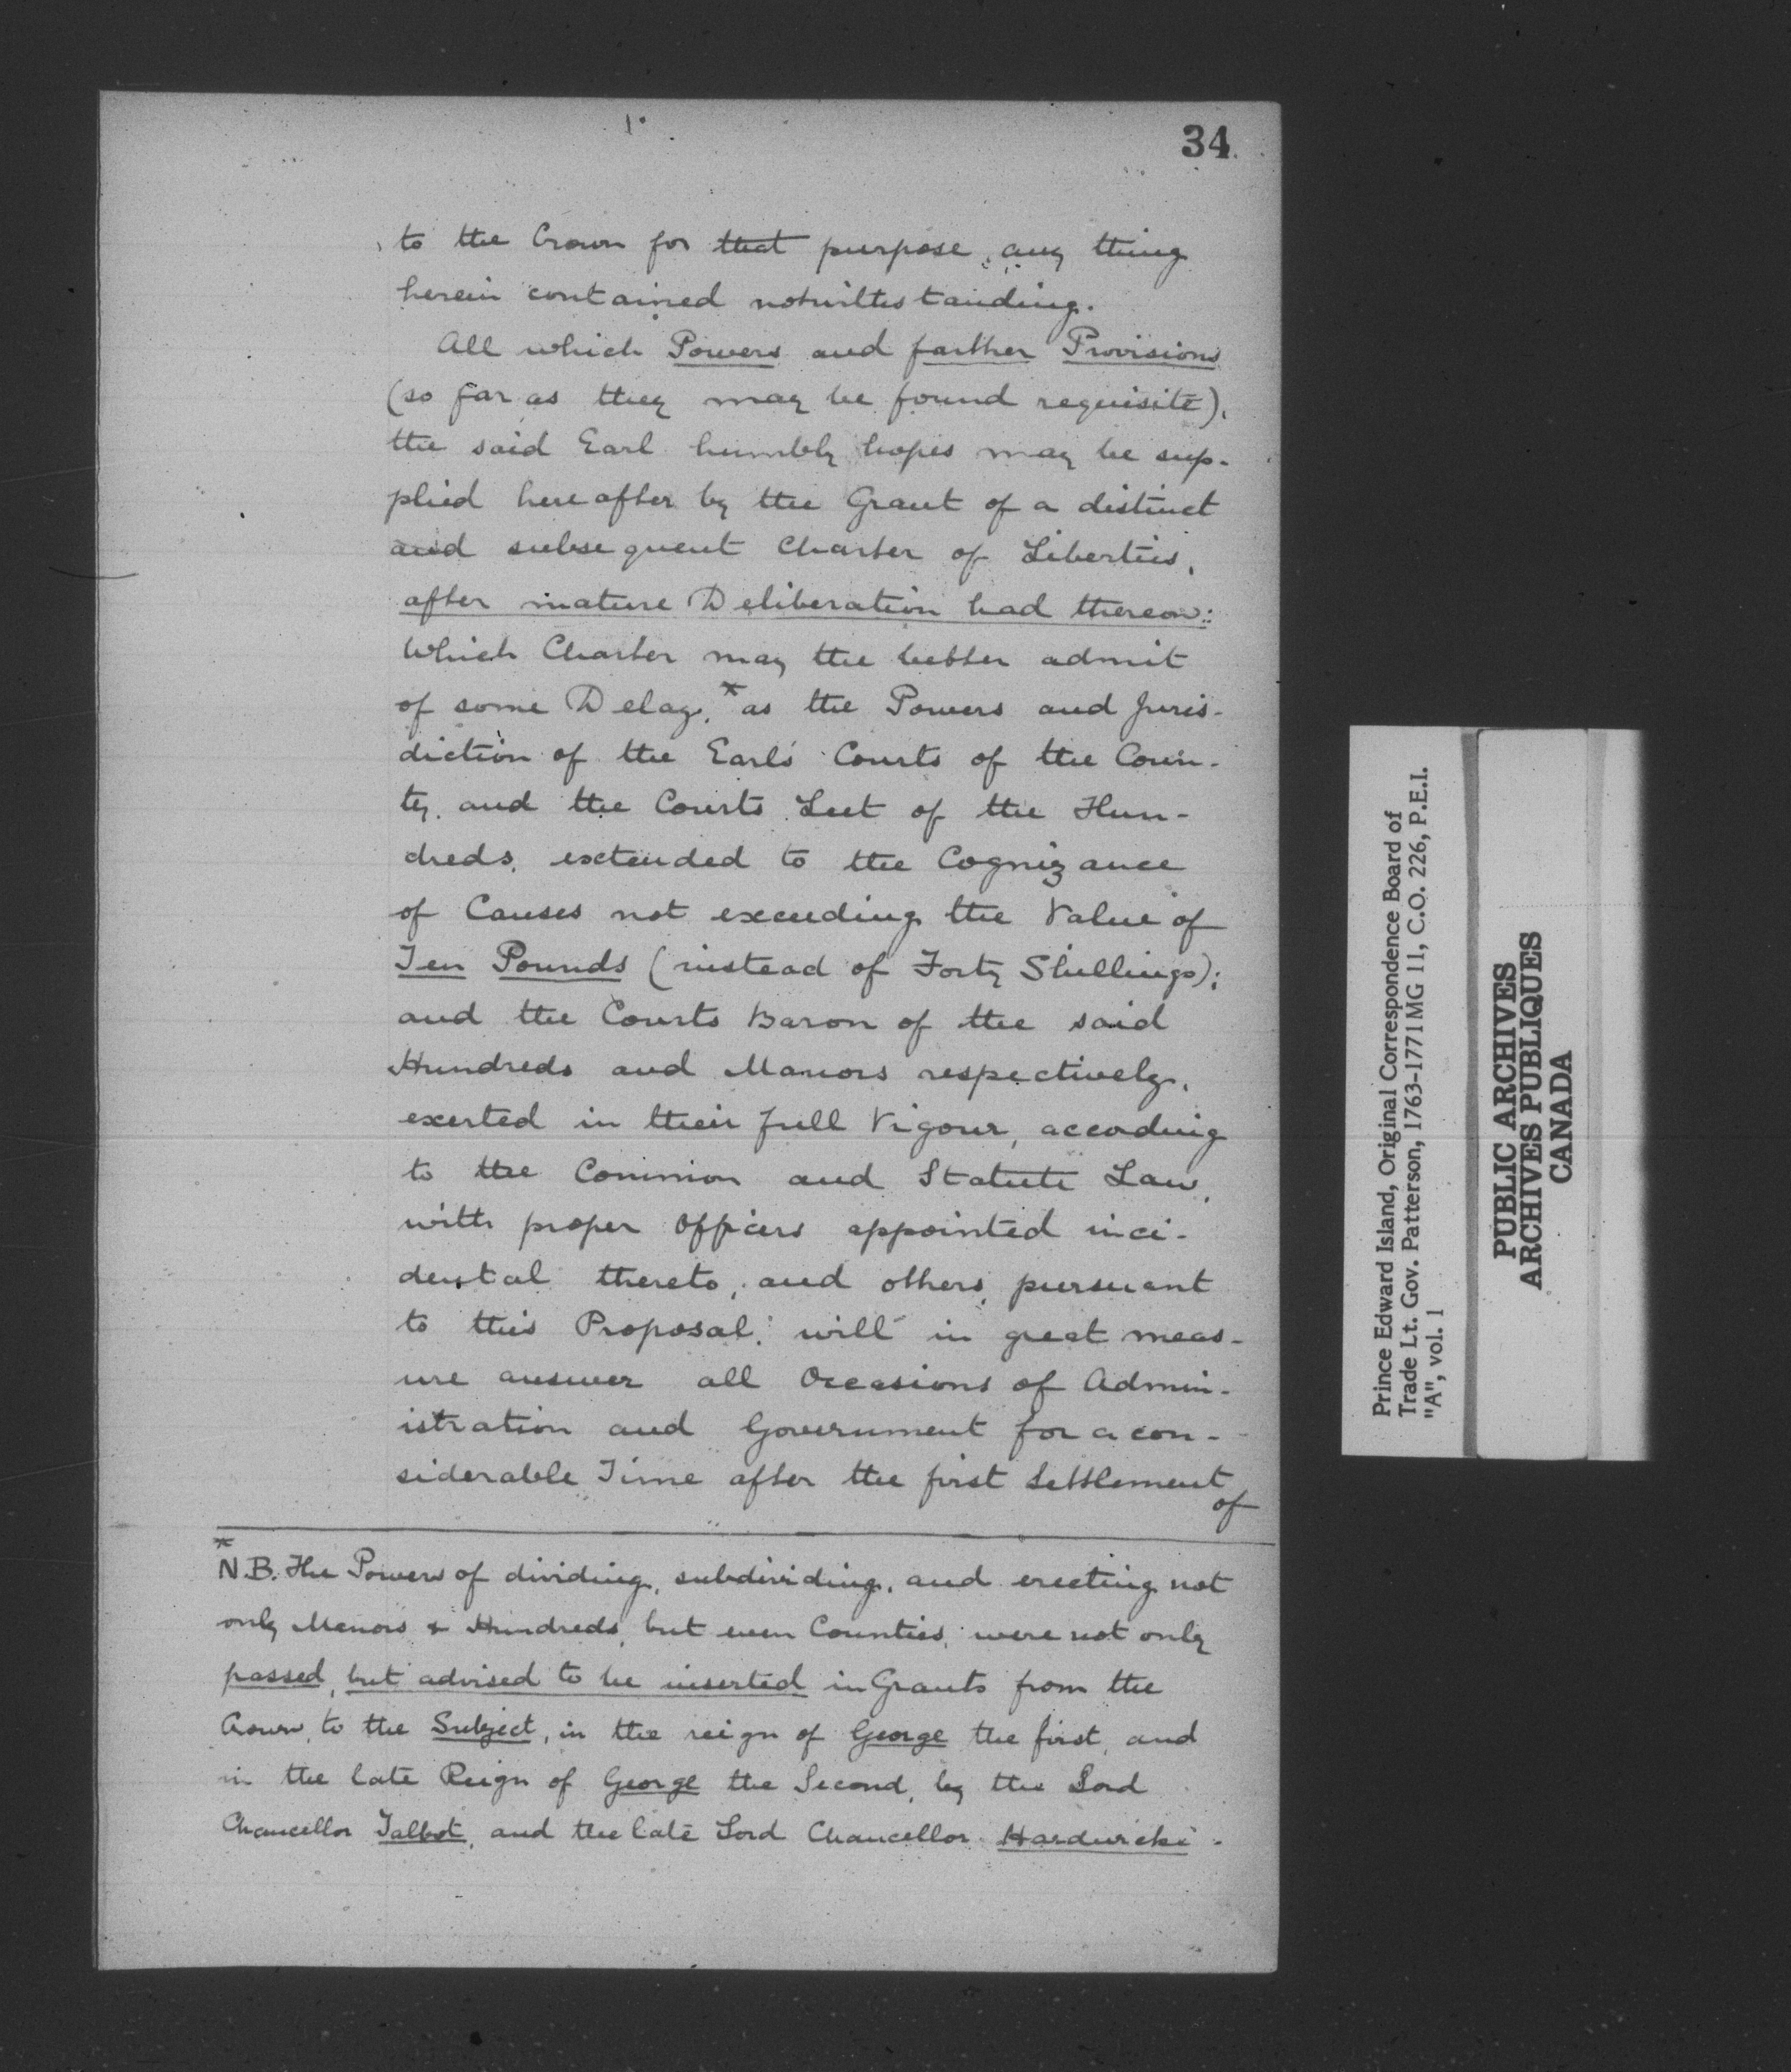 34
to the Crown for that purpose, any thing
herein contained notwithstanding.
All which Powers and farther Provisions
(so far as they may be found requisite),
the said Earl humbly hopes may be sup-
plied hereafter by the Grant of a distinct
and subsequent Charter of Liberties,
after mature Deliberation had thereon:
Which Charter may the better admit
of some Delay,* as the Powers and Juris-
diction of the Earl's Courts of the Coun-
ty, and the Courts Leet of the Hun-
dreds, extended to the Cognizance
of Causes not exceeding the Value of
Ten Pounds (instead of Forty Shillings);
and the Courts Baron of the said
Hundreds and Manors respectively,
exerted in their full Vigour, according
to the Common and Statute Law,
with proper Officers appointed inci-
dental thereto, and others, pursuant
to this Proposal, will in great meas-
ure answer all Occasions of Admin-
istration and Government for a con-
siderable Time after the first Settlement
of
* N.B. The Powers of dividing, subdividing, and erecting not
only Manors & Hundreds, but even Counties, were not only
passed, but advised to be inserted in Grants from the
Crown, to the Subject, in the reign of George the first, and
in the late Reign of George the Second, by the Lord
Chancellor Talbot, and the late Lord Chancellor Hardwicke.
Prince Edward Island, Original Correspondence Board of
Trade Lt. Gov. Patterson, 1763-1771 MG 11, C.O. 226, P.E.I.
"A", vol. 1
PUBLIC ARCHIVES
ARCHIVES PUBLIQUES
CANADA